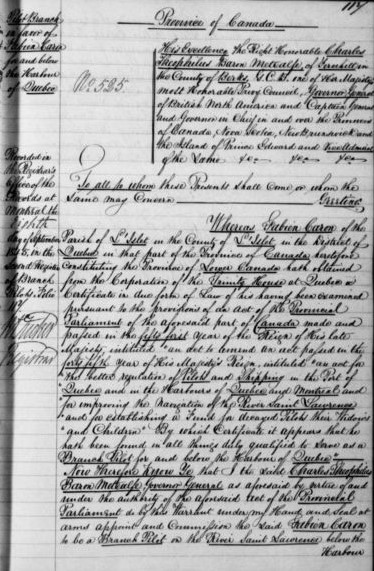 117
Province of Canada
Pilot Branch
in favor of
Fabien Caron
for and below
the Harbour
of Quebec
No. 525
His Excellency the Right Honorable Charles
Theophilus Baron Metcalfe of Fernhill in
the County of Berks, G.C.B. one of Her Majesty's
most Honorable Privy Council, Governor General
of British North America and Captain General
and Governor in Chief in and over the Provinces
of Canada, Nova Scotia, New Brunswick and
the Island of Prince Edward and Vice Admiral
of the Same &c &c &c
To all to whom these Presents shall Come or whom the
Same may Concern Greeting
Recorded in
the Registrar's
Office of the
Records at
Montreal the
day of September
1845, in the
Register
of Branch
Pilots Folio
Registrar
Whereas Fabien Caron of the
Parish of L'Islet in the County of L'Islet, in the District of
Quebec in that part of the Province of Canada heretofore
Constituting the Province of Lower Canada hath obtained
from the Corporation of the Trinity House at Quebec a
Certificate in due form of Law of his having been examined
pursuant to the provisions of an Act of the Provincial
Parliament of the aforesaid part of Canada made and
passed in the fifty first year of the Reign of His late
Majesty, instituted "an act to amend an act passed in the
forty fifth year of His Majesty's Reign, instituted "an act for
the better regulation of Pilots and Shipping in the Port of
Quebec and in the Harbours of Quebec and Montreal and
for improving the Navigation of the River Saint Lawrence
"and for establishing a Fund for decayed Pilots their Widows
"and Children" By which Certificate it appears that he
hath been found in all things duly qualified to serve as a
Branch Pilot for and below the Harbour of Quebec
Now Therefore Know Ye that I the said Charles Theophilus
Baron Metcalfe Governor General as aforesaid by virtue of and
under the authority of the aforesaid Act of the Provincial
Parliament do by this Warrant under my Hand and Seal at
arms appoint and Commission the said Fabien Caron
to be a Branch Pilot on the River Saint Lawrence below the
Harbour